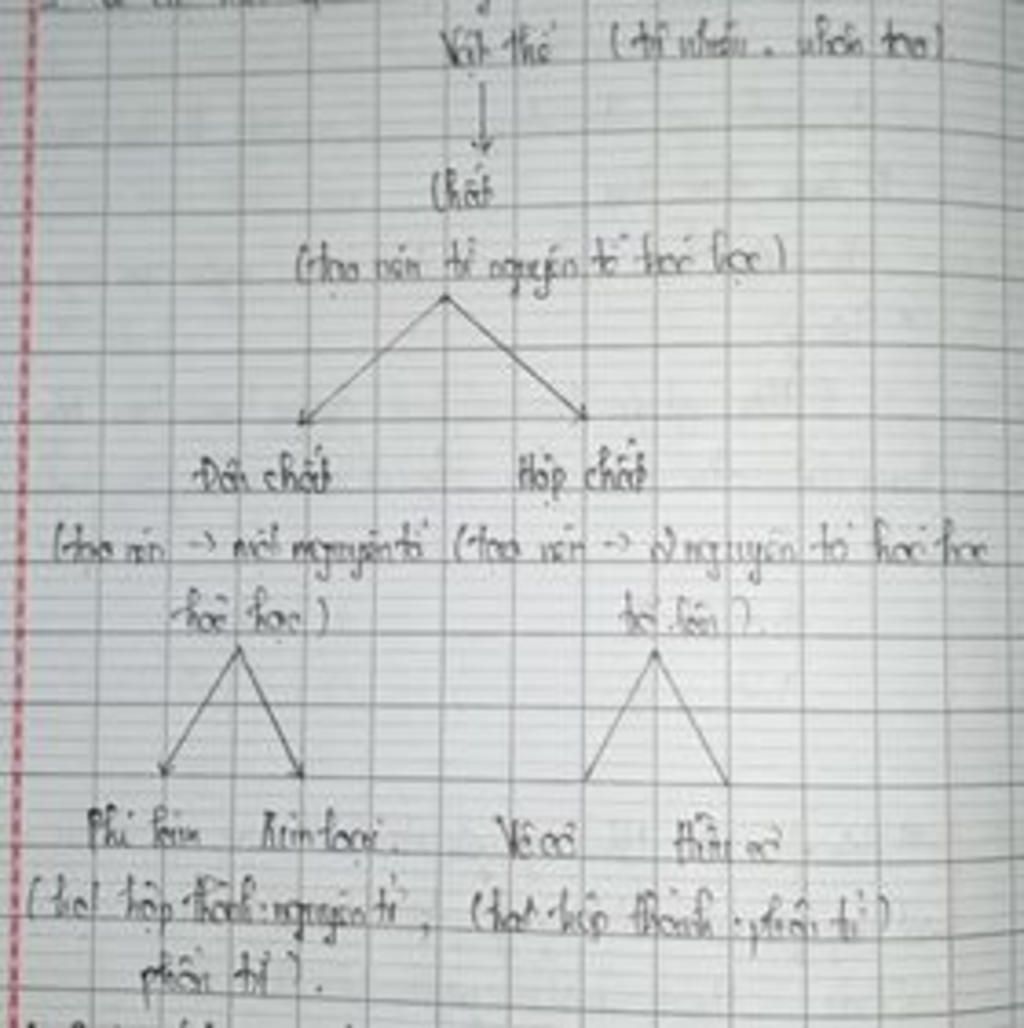 Vật thể (tự nhiên, nhân tạo)
Chất
(tạo nên từ nguyên tố hoá học)
Đơn chất Hợp chất
(tạo nên -> một nguyên tố (tạo nên -> 2 nguyên tố hoá học
hoá học) trở lên).
Phi kim Kim loại Vô cơ Hữu cơ
(hạt hợp thành: nguyên tử, (hạt hợp thành: phân tử)
phân tử).